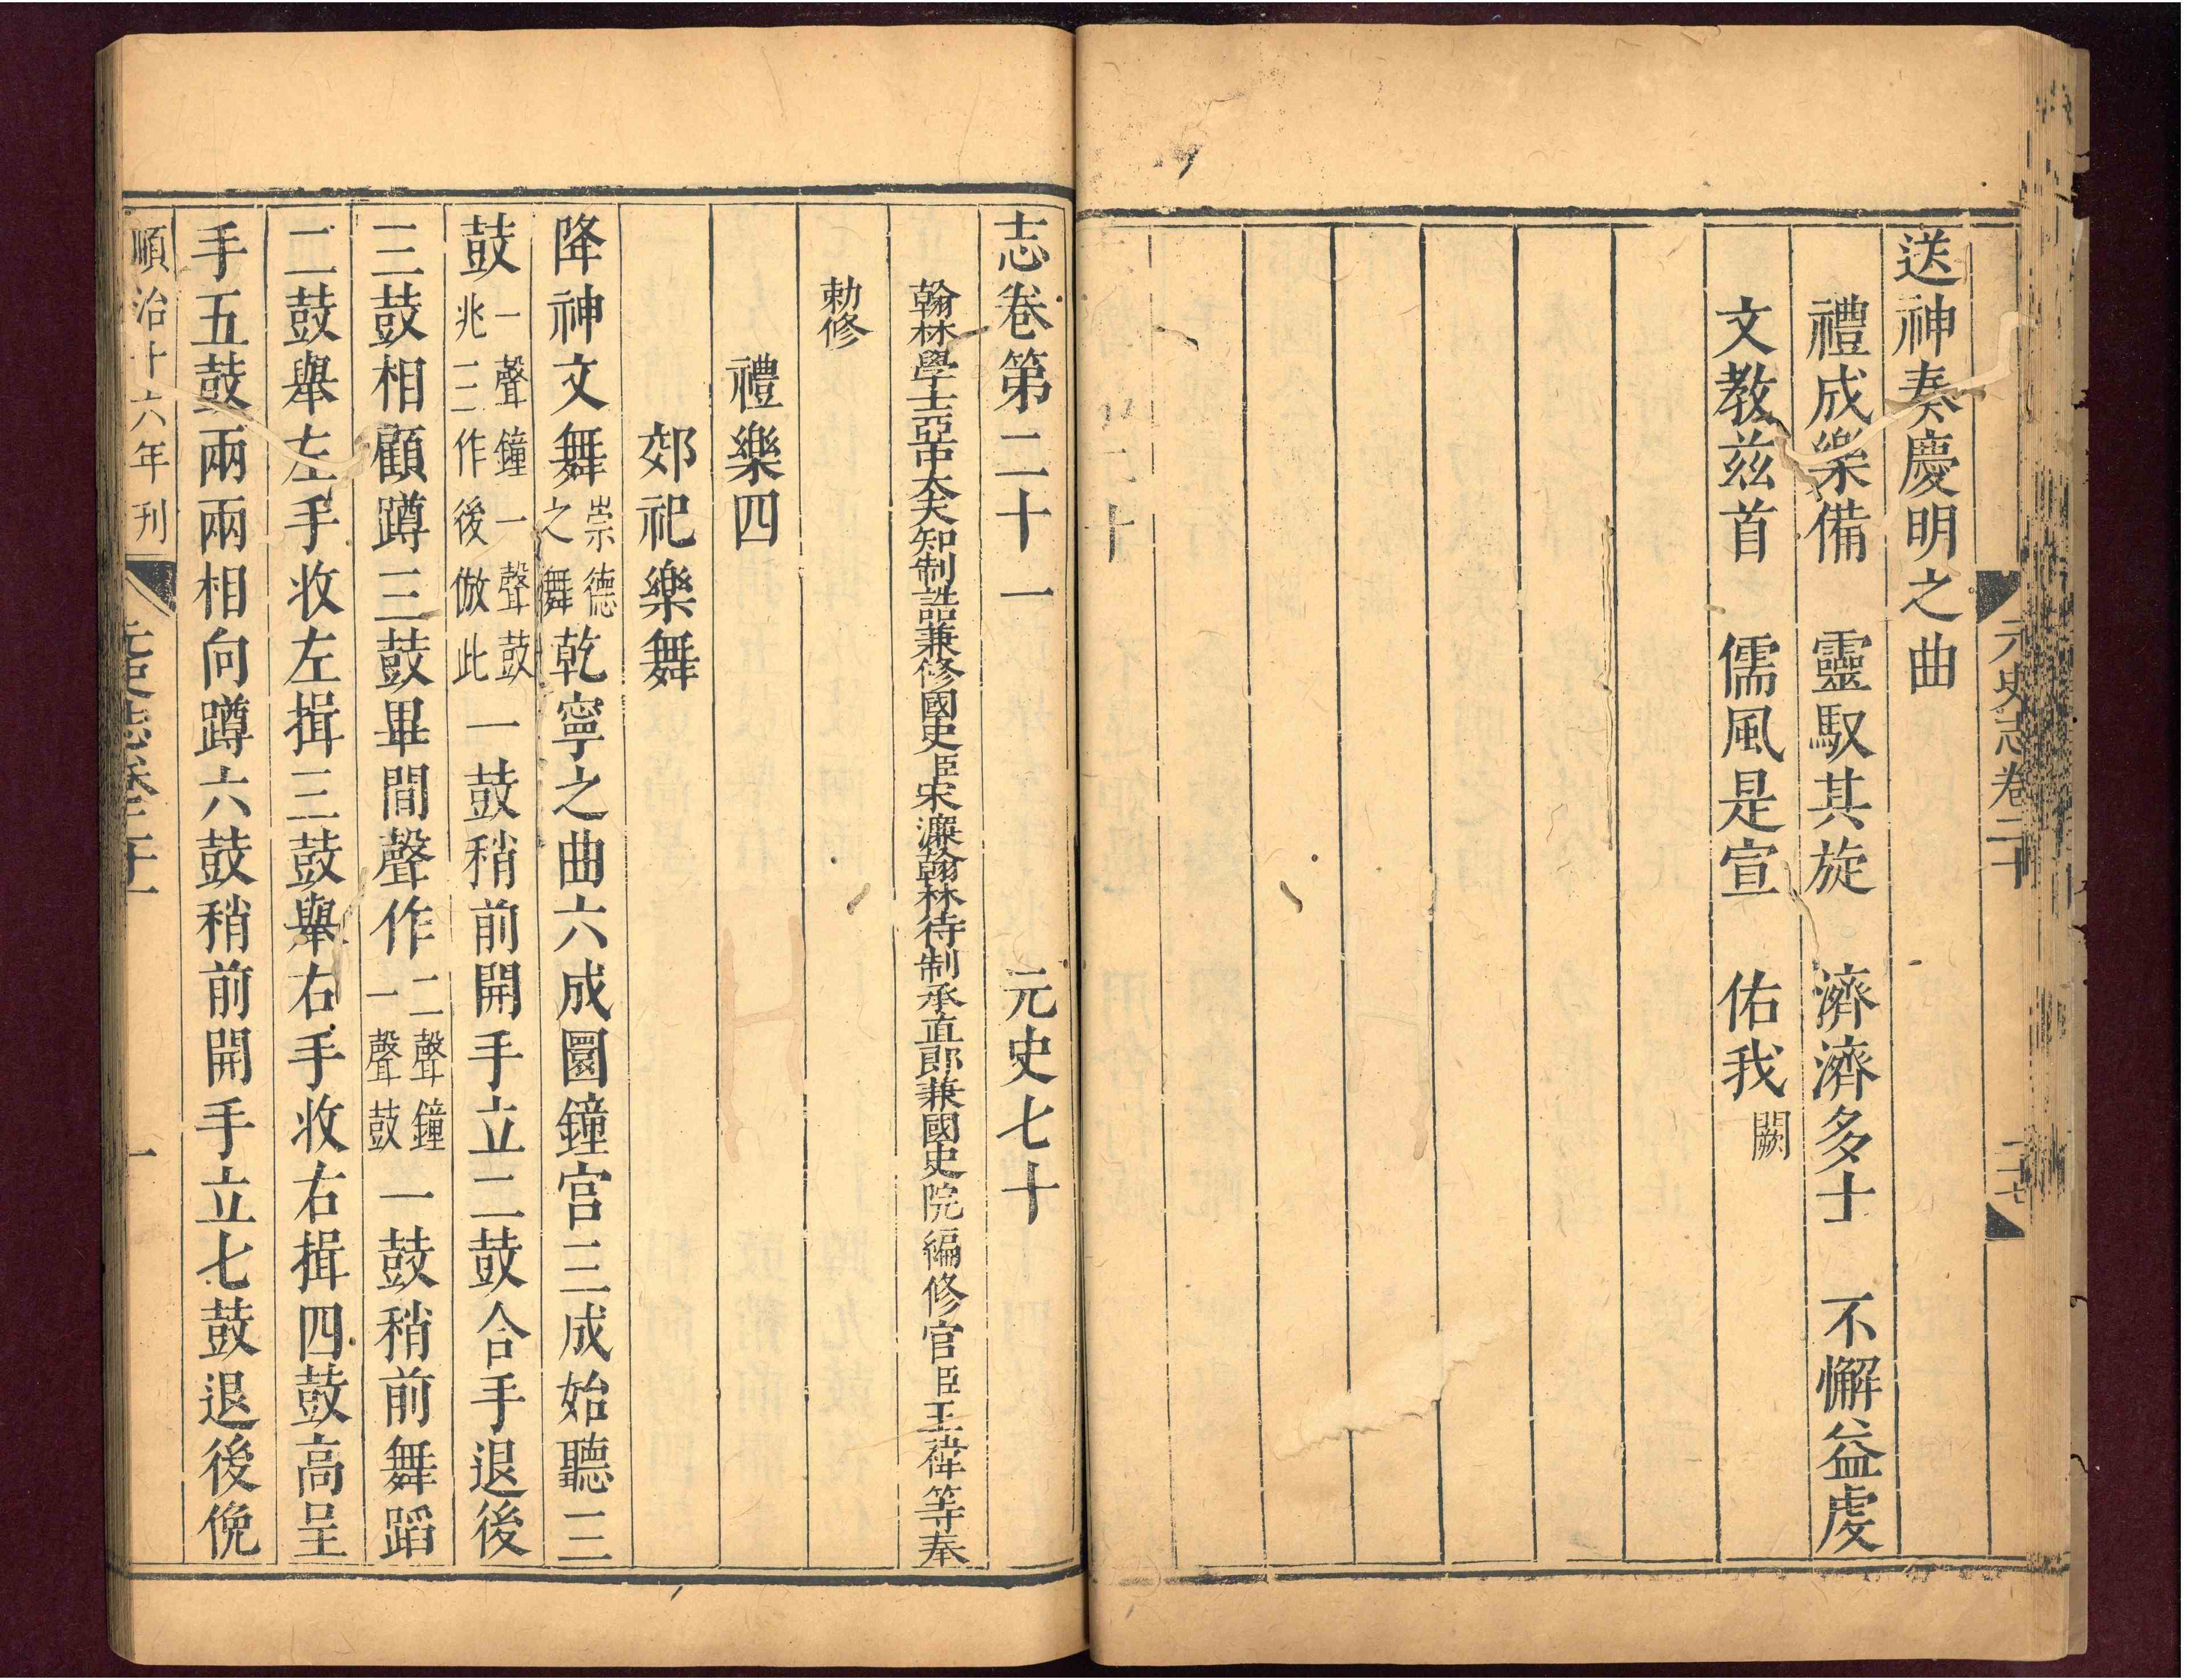 元史志卷二十
二十七
送神奏慶明之曲
禮成樂備 靈馭其旋 濟濟多士 不懈益虔
文教茲首 儒風是宣 佑我闕
二十
志卷第二十一 元史七十
翰林學士亞中大夫知制誥兼修國史臣宋濂翰林待制承直郎兼國史院編修官臣王禕等奉
勅修
禮樂四
郊祀樂舞
降神文舞崇德之舞乾寧之曲六成圜鐘宮三成始聽三
鼓一聲鐘一聲鼓兆三作後倣此一鼓稍前開手立二鼓合手退後
三鼓相顧蹲三鼓畢間聲作二聲鐘一聲鼓一鼓稍前舞蹈
二鼓舉左手收左揖三鼓舉右手收右揖四鼓高呈
手五鼓兩兩相向蹲六鼓稍前開手立七鼓退後俛
順治十六年刊 元史志卷二十一 一